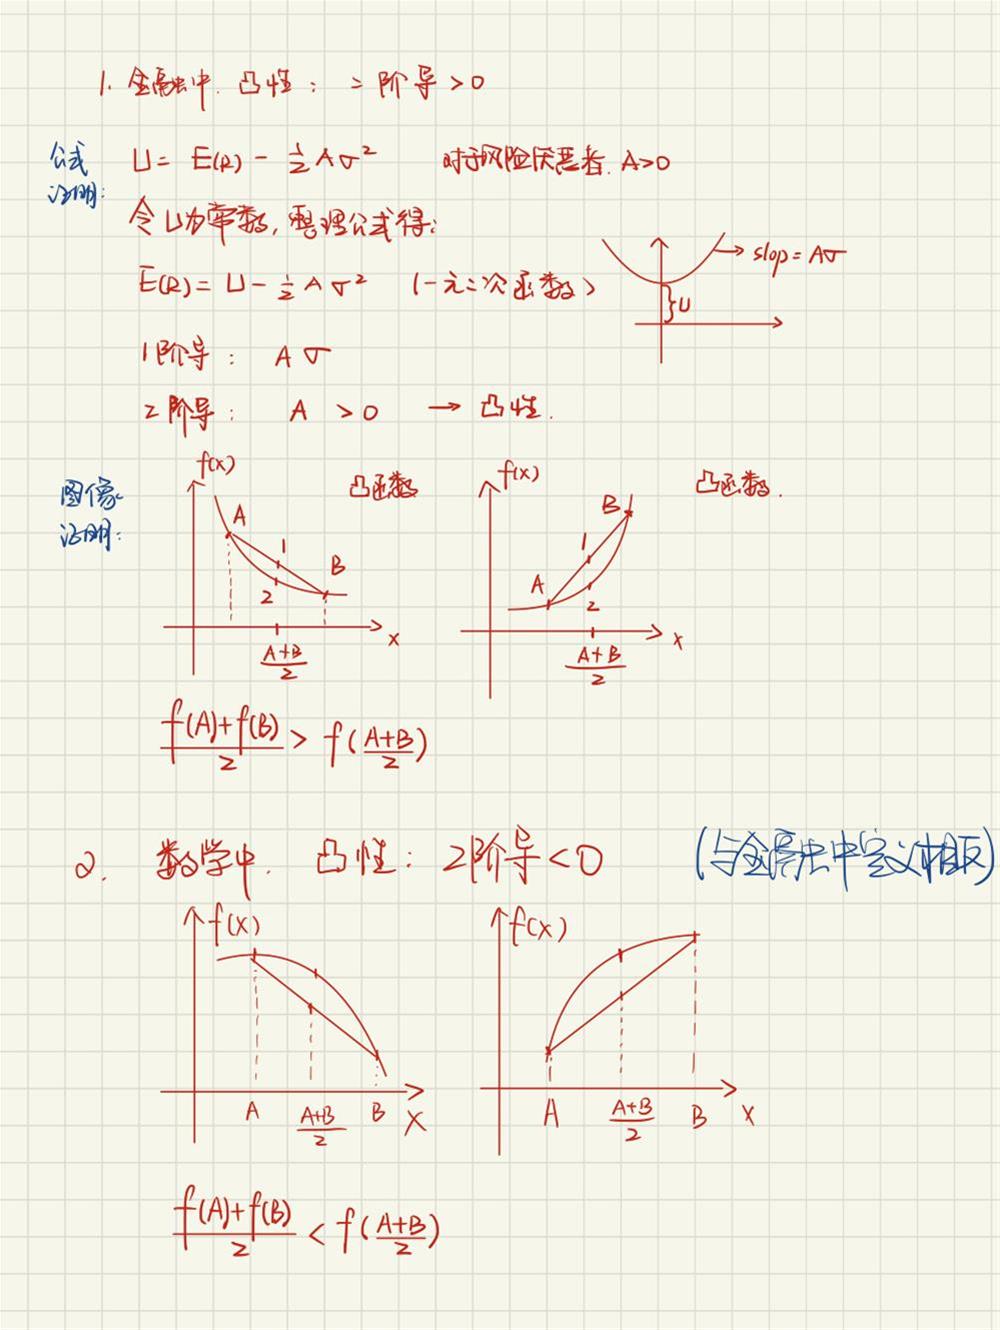 1. 金融中. 凸性： 二阶导>0
公式
证明：
U = E(R) - 1/2 Aσ² 对于风险厌恶者. A>0
令U为常数, 整理公式得：
E(R) = U - 1/2 Aσ² (一元二次函数)
slop = Aσ
U
1阶导： Aσ
2阶导： A >0 → 凸性.
图像
证明：
f(x) 凸函数
A
1
B
2
x
(A+B)/2
f(x) 凸函数.
B
1
A
2
x
(A+B)/2
(f(A)+f(B))/2 > f((A+B)/2)
2. 数学中. 凸性： 2阶导<0 (与金融中定义相反)
f(x)
A (A+B)/2 B x
f(x)
A (A+B)/2 B x
(f(A)+f(B))/2 < f((A+B)/2)